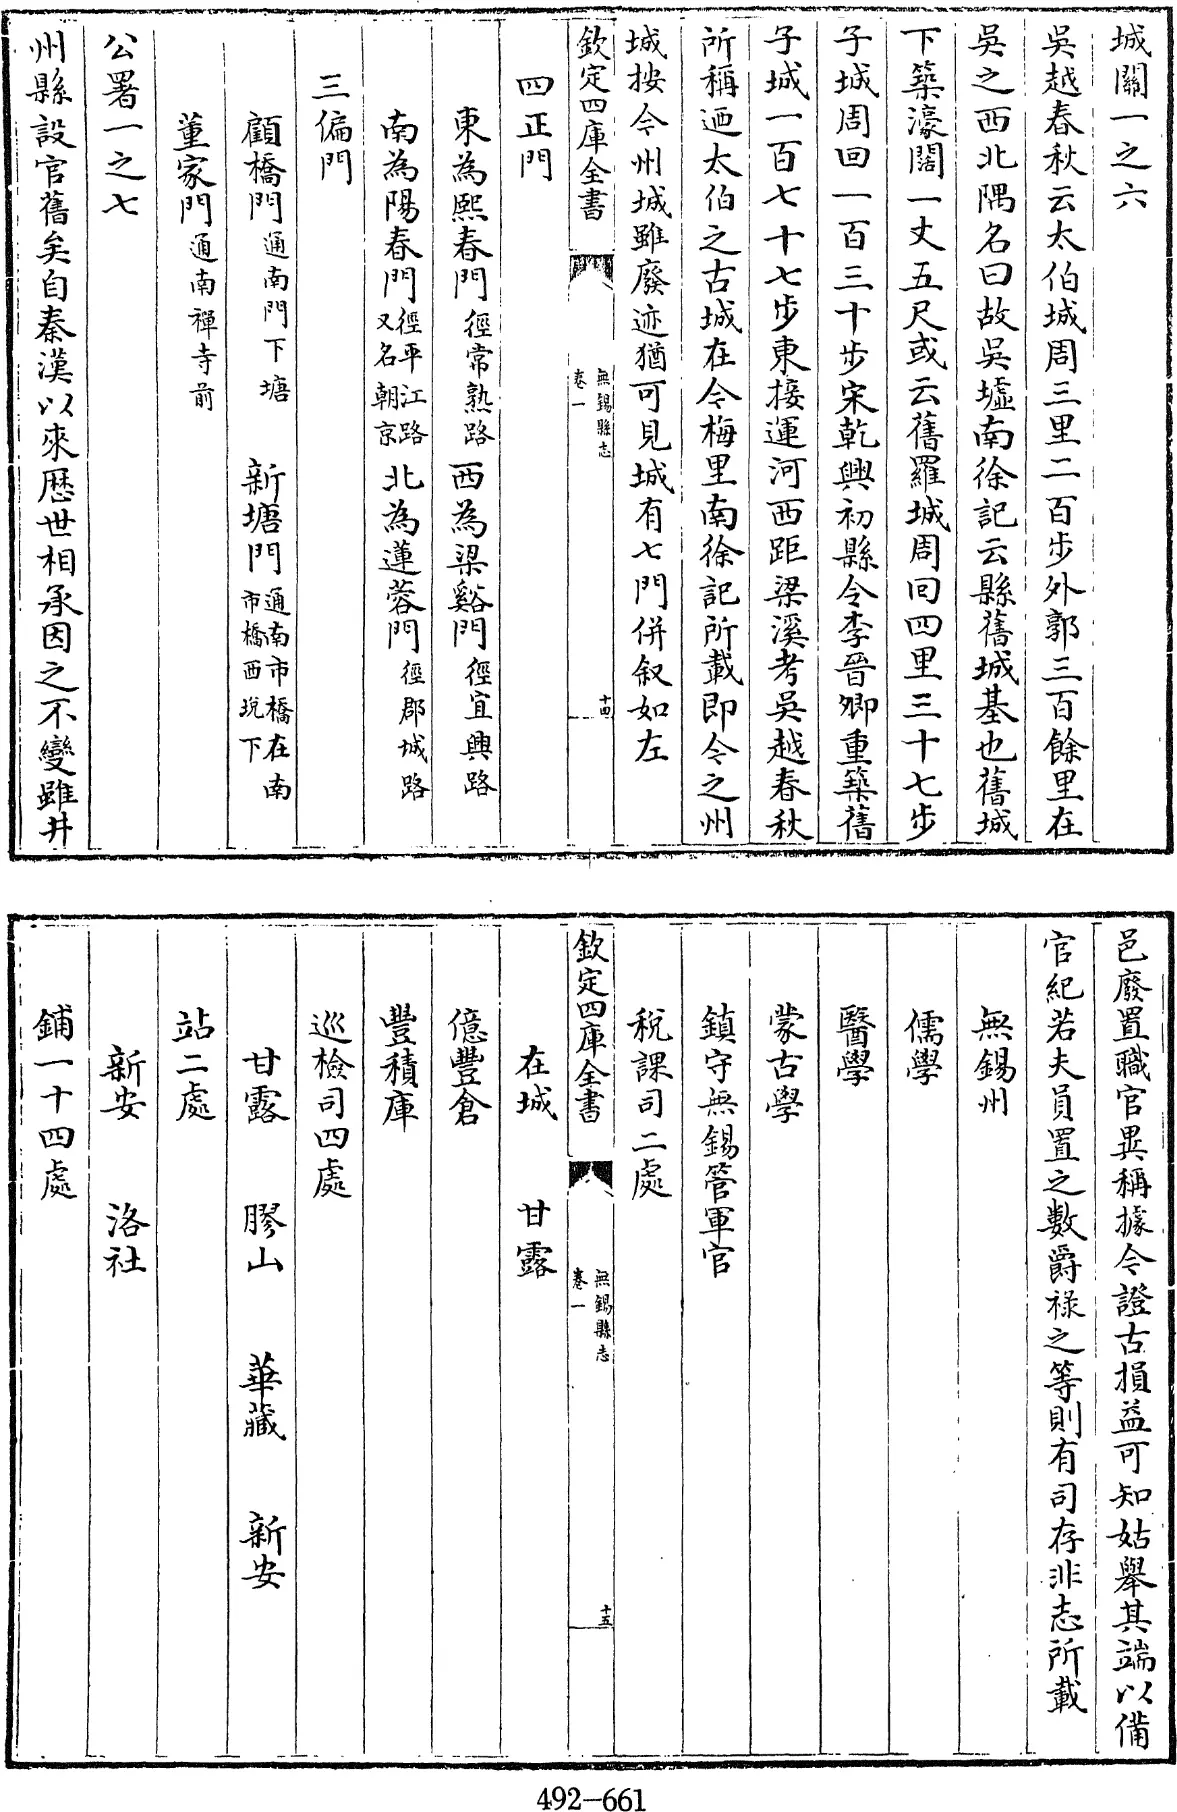 城闗一之六
吳越春秋云太伯城周三里二百步外郭三百餘里在
吳之西北隅名曰故吳墟南徐記云縣舊城基也舊城
下築濠闊一丈五尺或云舊羅城周回四里三十七步
子城周回一百三十步宋乾興初縣令李晉卿重築舊
子城一百七十七步東接運河西距梁溪考吳越春秋
所稱迺太伯之古城在今梅里南徐記所載即今之州
城按今州城雖廢迹猶可見城有七門併叙如左
欽定四庫全書
無錫縣志
卷一
十四
四正門
東為熙春門徑常熟路 西為梁谿門徑宜興路
南為陽春門徑平江路又名朝京 北為蓮蓉門徑郡城路
三偏門
顧橋門通南門下塘 新塘門通南市橋在南市橋西堍下
董家門通南禪寺前
公署一之七
州縣設官舊矣自秦漢以來歴世相承因之不變雖井
邑廢置職官異稱據今證古損益可知姑舉其端以備
官紀若夫員置之數爵祿之等則有司存非志所載
無錫州
儒學
醫學
蒙古學
鎮守無錫管軍官
稅課司二處
欽定四庫全書
無錫縣志
卷一
十五
在城 甘露
億豐倉
豐積庫
巡檢司四處
甘露 膠山 華藏 新安
站二處
新安 洛社
鋪一十四處
492-661